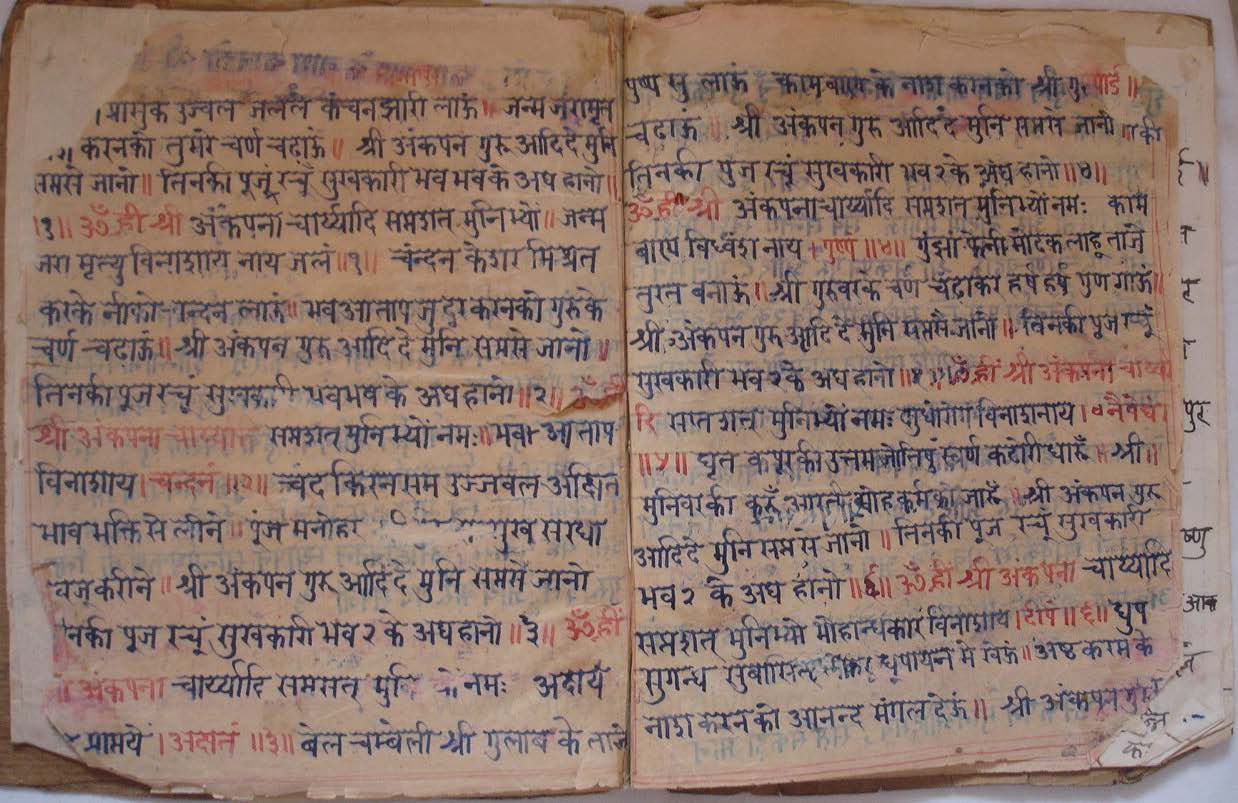 प्रासुक उज्वल जललें कंचन झारी लाऊं॥ जन्म जरामृत
करनकों तुमरे चर्ण चढाऊं॥ श्री अंकपन गुरु आदि दे मुनि
सप्तसे जानों॥ तिनकी पूजूं रचूं सुखकारी भव भवके अघ हानों॥
१॥ ॐ ह्रीं श्री अंकपना चार्य्यादि सप्तशत् मुनिभ्यों॥ जन्म
जरा मृत्यु विनाशाय नाय जलं॥१॥ चंन्दन केशर मिश्रत
करके नीको चन्दन लाऊं॥ भव आताप जु दूर करनकों गुरुके
चर्ण चढाऊं॥ श्री अंकपन गुरु आदि दे मुनि सप्तसे जानों॥
तिनकी पूज रचूं सुखकारी भवभव के अघ हानों॥२॥ ॐ
श्री अंकपना सप्तशत् मुनिभ्यों नमः॥ भवा आताप
विनाशाय। चन्दनं॥२॥ चंद किरन सम उज्जवल अक्षित
भाव भक्ति से लीने॥ पूंज मनोहर
श्री अंकपन गुरु आदि दे मुनि सप्तसे जानों
नकी पूज रचूं सुखकारी भव २ के अघहानों॥३॥ ॐ ह्रीं
अंकपना चार्य्यादि सप्तसत् नमः अक्षय
अक्षतं॥३॥ बेल चम्बेली श्री गुलाब के ताजे
पुष्प सु लाऊं काम बाण के नाश करनको श्री
चढाऊ॥ श्री अंकपन गुरु आदि दे मुनि सप्तसे जानों
तिनकी पुज रचूं सुखकारी भव २ के अघ हानों॥४॥
ॐ ह्रीं श्री अंकपना चार्य्यादि सप्तशत् मुनिभ्यों नमः काम
बाण विध्वंश नाय। पुष्पं॥४॥ गुझा फेनी मोदक लाडू ताजे
तुरत बनाऊं॥ श्री गुरुवरके चर्ण चढाकर हर्ष हर्ष गुण गाऊं॥
श्री अंकपन गुरु आदि दे मुनि सप्तसै जानों॥ तिनकी पूज रचूं
सुखकारी भव २ के अघ हानों॥ ॐ ह्रीं श्री अंकपना
दि सप्त शत् मुनिभ्यों नमः क्षुधारोग विनाशनाय।
॥५॥ घृत कपूरकी उत्तम जोतिपुं स्वर्ण कटोरी धारूँ॥ श्री॥
मुनिवरकी करूँ आरती मोह कर्मको जारूँ॥ श्री अंकपन गुरु
आदि दे मुनि सप्त स जानों॥ तिनकी पूज रचूं सुखकारी
भव २ के अघ हांनो॥६॥ ॐ ह्रीं श्री अंकपना चार्य्यादि
सप्तशत् मुनिभ्यों मोहान्धकार विनाशाय। दीपं॥६॥ धुप
सुगन्ध धूपायन मे खेऊं॥ अष्ट करम के
नाश करनको आनन्द मंगल देऊं॥ श्री अंकपन गुरु
पुर
ष्णु